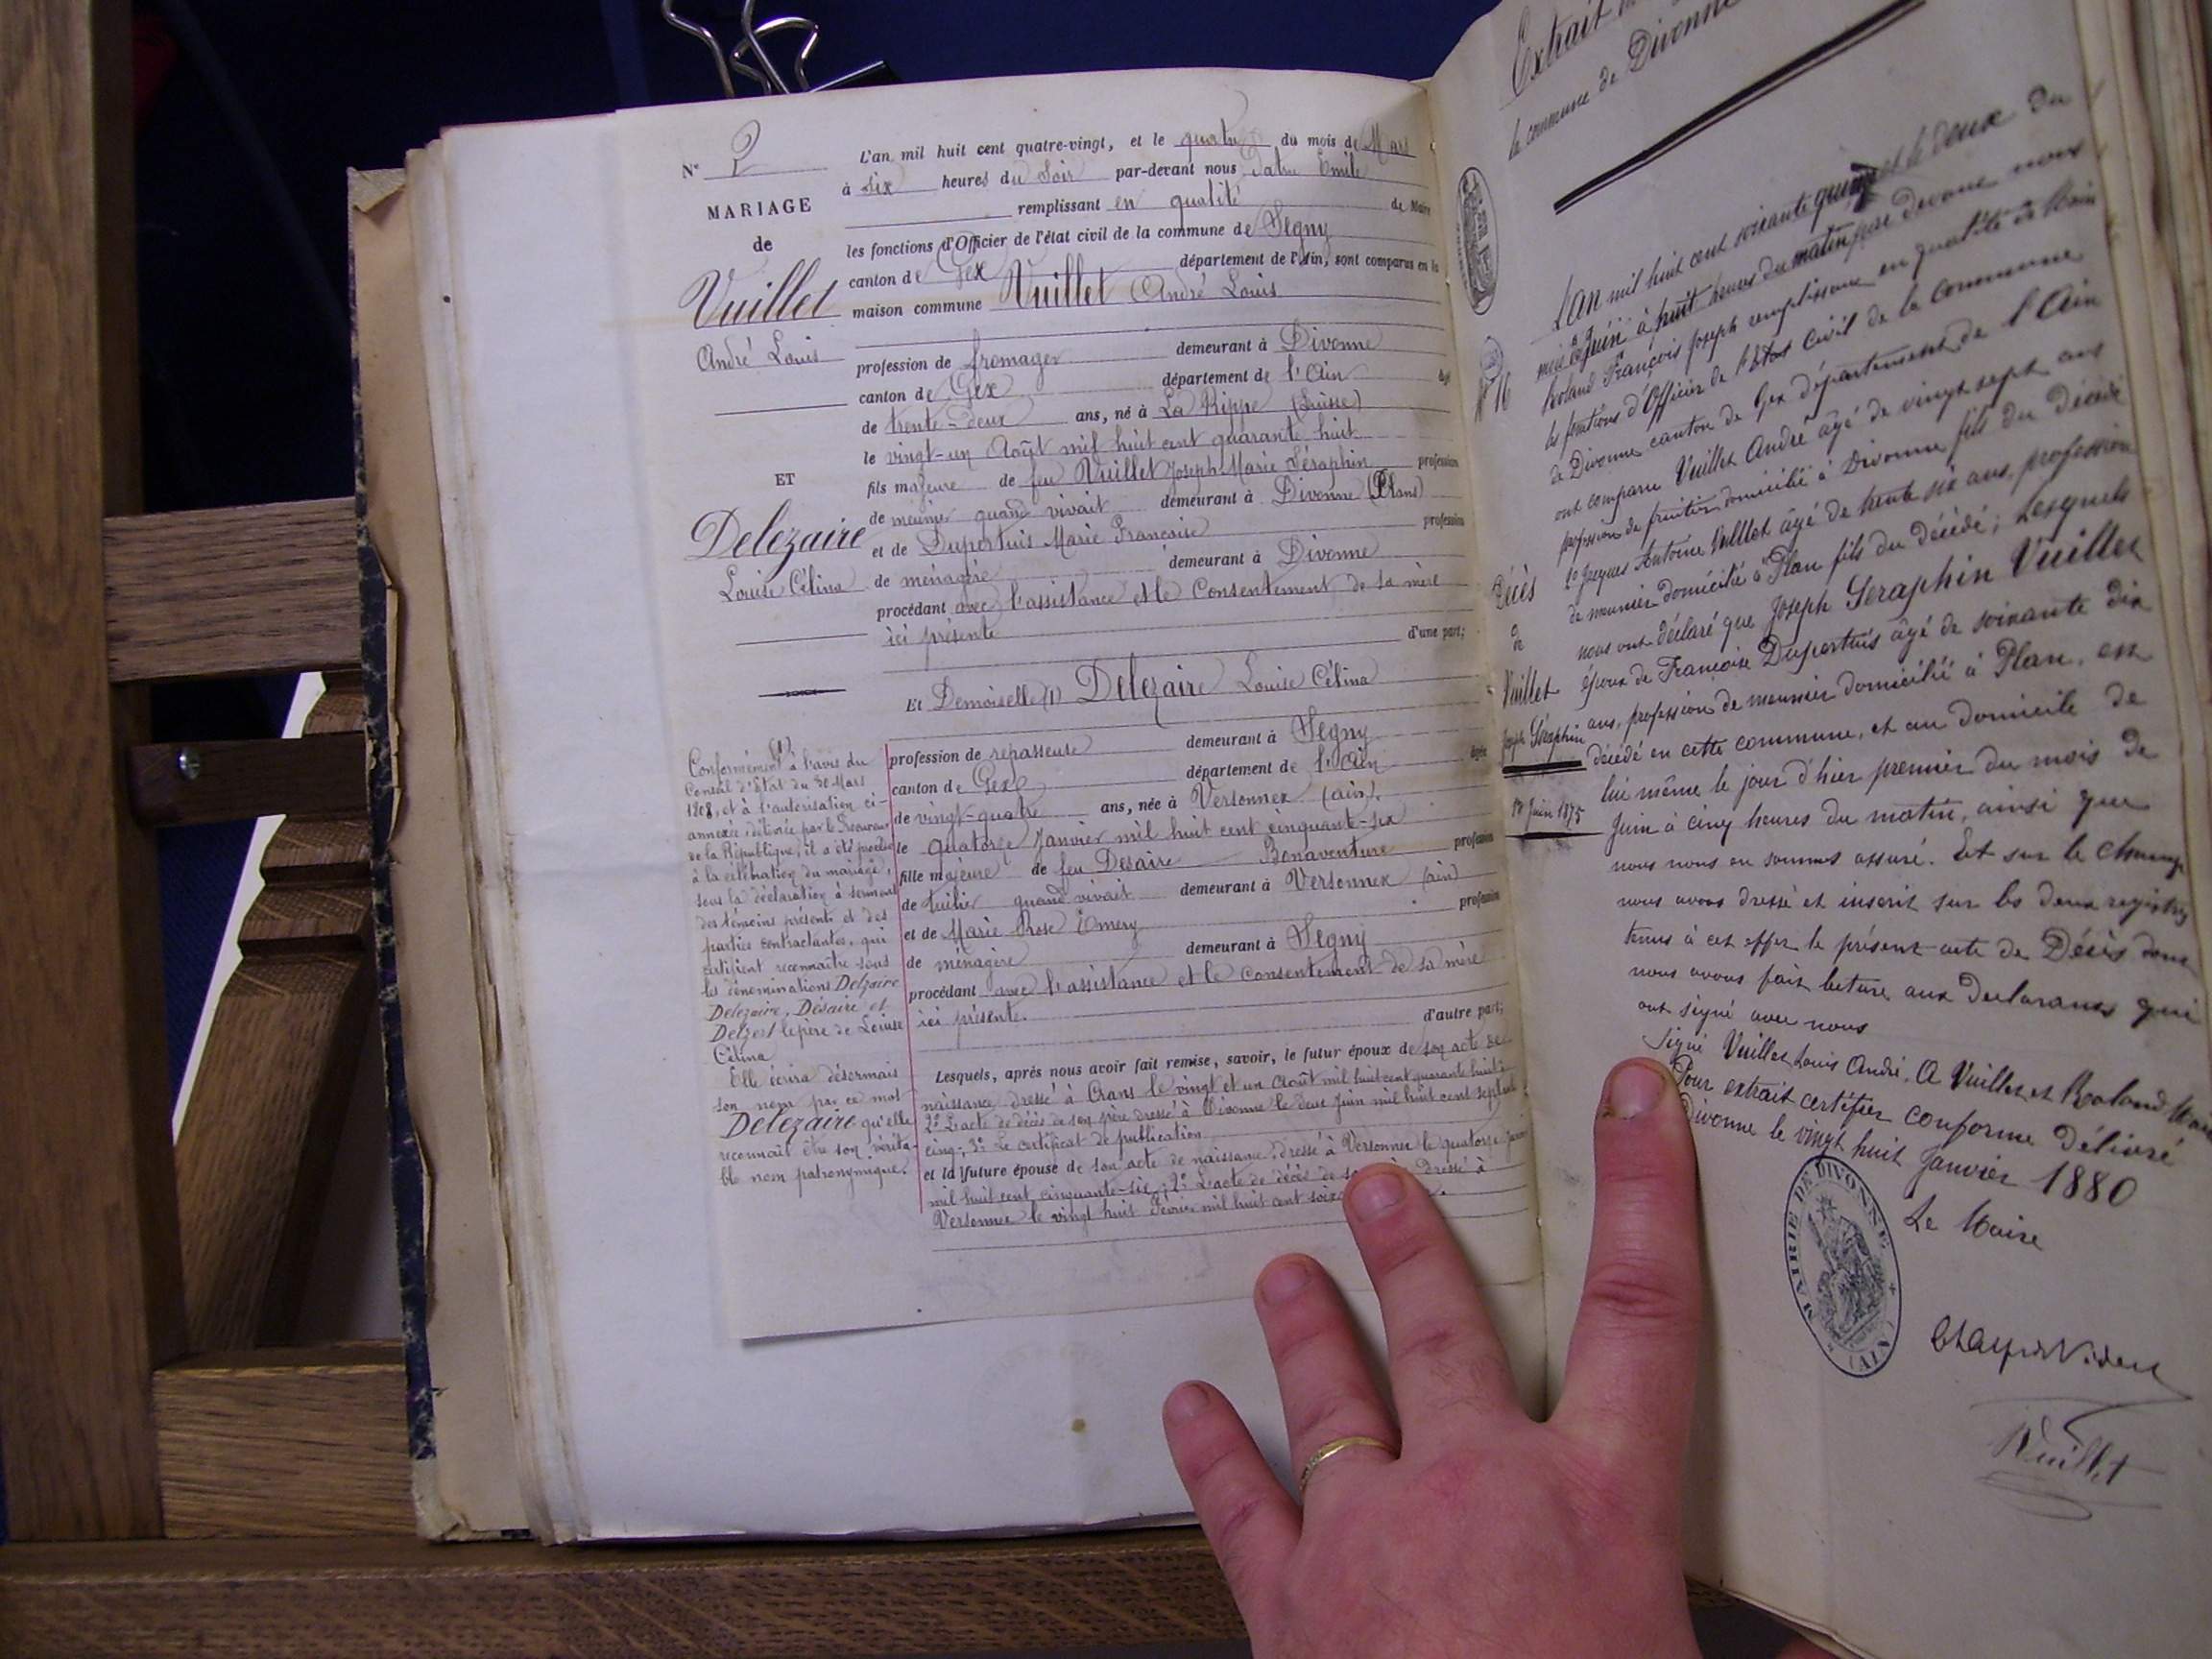 N° 2
MARIAGE
de
Vuillet
André Louis
ET
Delezaire
Louise Célina
L'an mil huit cent quatre-vingt, et le quatre du mois de Mars
à six heures du Soir par-devant nous Emile
remplissant en qualité de Maire
les fonctions d'Officier de l'état civil de la commune de Segny
canton de Gex département de l'Ain, sont comparus en la
maison commune Vuillet André Louis
profession de fromager demeurant à Divonne
canton de Gex département de l'Ain âgé
de trente-deux ans, né à La Rippe (Suisse)
le vingt-un Août mil huit cent quarante huit
fils majeure de feu Vuillet Joseph Marie Séraphin profession
de meunier quand vivait demeurant à Divonne (Plans)
et de Dupertuis Marie Françoise profession
de ménagère demeurant à Divonne
procédant avec l'assistance et le Consentement de sa mère
ici présente d'une part;
Et Demoiselle (1) Delezaire Louise Célina
profession de repasseuse demeurant à Segny
canton de Gex département de l'Ain âgée
de vingt-quatre ans, née à Versonnex (ain).
le quatorze Janvier mil huit cent cinquante-six
fille majeure de feu Desaire Bonaventure profession
de tuilier quand vivait demeurant à Versonnex (ain)
et de Marie Rose Emery profession
de ménagère demeurant à Segny
procédant avec l'assistance et le Consentement de sa mère
ici présente. d'autre part;
Lesquels, après nous avoir fait remise, savoir, le futur époux de son acte de
naissance, dressé à Crans le vingt et un Août mil huit cent quarante huit;
2° L'acte de décès de son père dressé à Divonne le deux Juin mil huit cent septante
cinq; 3° Le certificat de publication
et la future épouse de son acte de naissance, dressé à Versonnex le quatorze Janvier
mil huit cent cinquante-six; 2° L'acte de décès de dressé à
Versonnex le vingt huit Février mil huit cent
(1)
Conformément à l'avis du
Conseil d'Etat du 30 Mars
1808, et à l'autorisation ci-
annexée, délivrée par le Procureur
de la République, il a été procédé
à la célébration du mariage,
sous la déclaration à serment
des témoins présents et des
parties contractantes, qui
certifient reconnaître sous
les dénominations Delzaire
Delezaire, Désaire et
le père de Louise
Célina
Elle écrira désormais
son nom par ce mot
Delezaire qu'elle
reconnait être son vérita-
ble nom patronymique.
Extrait
la commune de Divonne
N° 16
Décès
de
Vuillet
Joseph Séraphin
1er Juin 1875
L'an mil huit cent soixante quinze et le deux du
mois de Juin à huit heures du matin par devant nous
Roland François Joseph remplissant en qualité de Maire
les fonctions d'Officier de l'état Civil de la Commune
de Divonne canton de Gex département de l'Ain
ont comparu Vuillet André âgé de vingt sept ans
profession de fruitier domicilié à Divonne fils du décédé
2° Jacques Antoine Vuillet âgé de trente six ans, profession
de meunier domicilié à Plan fils du décédé; Lesquels
nous ont déclaré que Joseph Seraphin Vuillet
époux de Françoise Dupertuis âgé de soixante dix
ans, profession de meunier domicilié à Plan, est
décédé en cette commune, et au domicile de
lui même le jour d'hier premier du mois de
Juin à cinq heures du matin, ainsi que
nous nous en sommes assuré. Et sur le champ
nous avons dressé et inscrit sur les deux registres
tenus à cet effet le présent acte de Décès dont
nous avons fait lecture aux Déclarants qui
ont signé avec nous
Signé Vuillet Louis André, A Vuillet et Roland Maire
Pour extrait certifier conforme Délivré
Divonne le vingt huit Janvier 1880
Le Maire
MAIRIE DE DIVONNE (AIN)
Vuillet